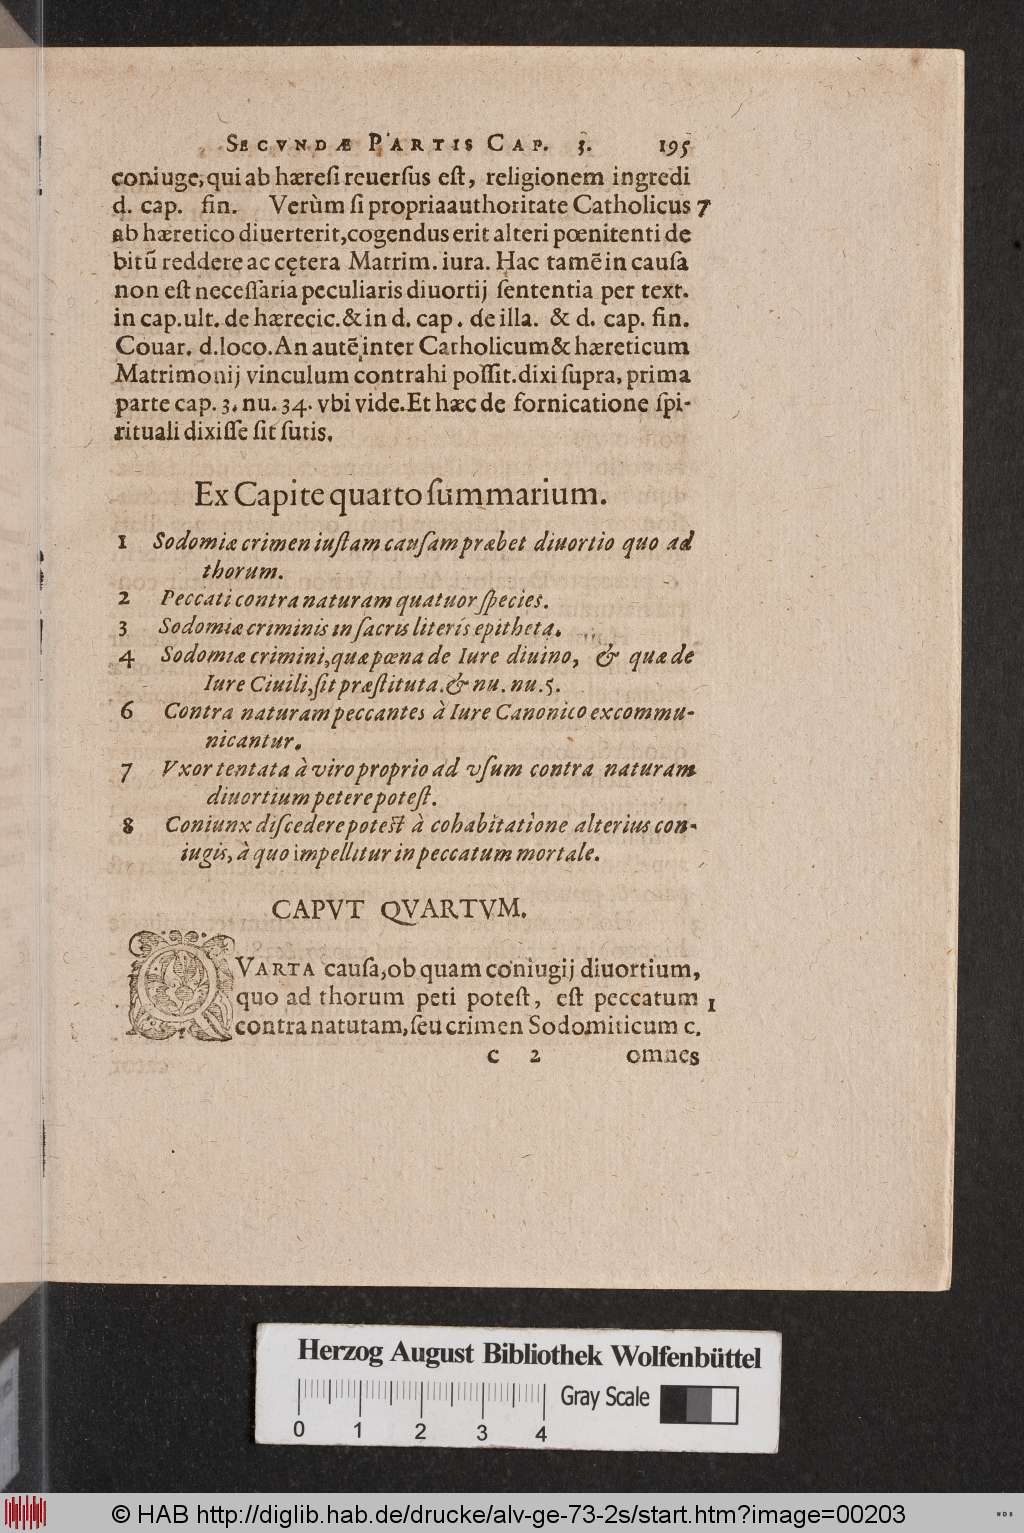 SECVNDÆ PARTIS CAP. 3. 195
coniuge, qui ab hæresi reuersus est, religionem ingredi
d. cap. fin. Verùm si propria authoritate Catholicus 7
ab hæretico diuerterit, cogendus erit alteri pœnitenti de
bitū reddere ac cętera Matrim. iura. Hac tamē in causa
non est necessaria peculiaris diuortij sententia per text.
in cap. ult. de hærecic. & in d. cap. de illa. & d. cap. fin.
Couar. d. loco. An autē inter Catholicum & hæreticum
Matrimonij vinculum contrahi possit. dixi supra, prima
parte cap. 3. nu. 34. vbi vide. Et hæc de fornicatione spi-
rituali dixisse sit sutis.
Ex Capite quarto summarium.
1 Sodomiæ crimen iustam causam præbet diuortio quo ad
thorum.
2 Peccati contra naturam quatuor species.
3 Sodomiæ criminis in sacris literis epitheta.
4 Sodomiæ crimini, quæ pœna de Iure diuino, & quæ de
Iure Ciuili, sit præstituta. & nu. nu. 5.
6 Contra naturam peccantes à Iure Canonico excommu-
nicantur.
7 Vxor tentata à viro proprio ad vsum contra naturam
diuortium petere potest.
8 Coniunx discedere potest à cohabitatione alterius con-
iugis, à quo impellitur in peccatum mortale.
CAPVT QVARTVM.
QVARTA causa, ob quam coniugij diuortium,
quo ad thorum peti potest, est peccatum 1
contra natutam, seu crimen Sodomiticum c.
c 2 omnes
Herzog August Bibliothek Wolfenbüttel
Gray Scale
0 1 2 3 4
© HAB http://diglib.hab.de/drucke/alv-ge-73-2s/start.htm?image=00203